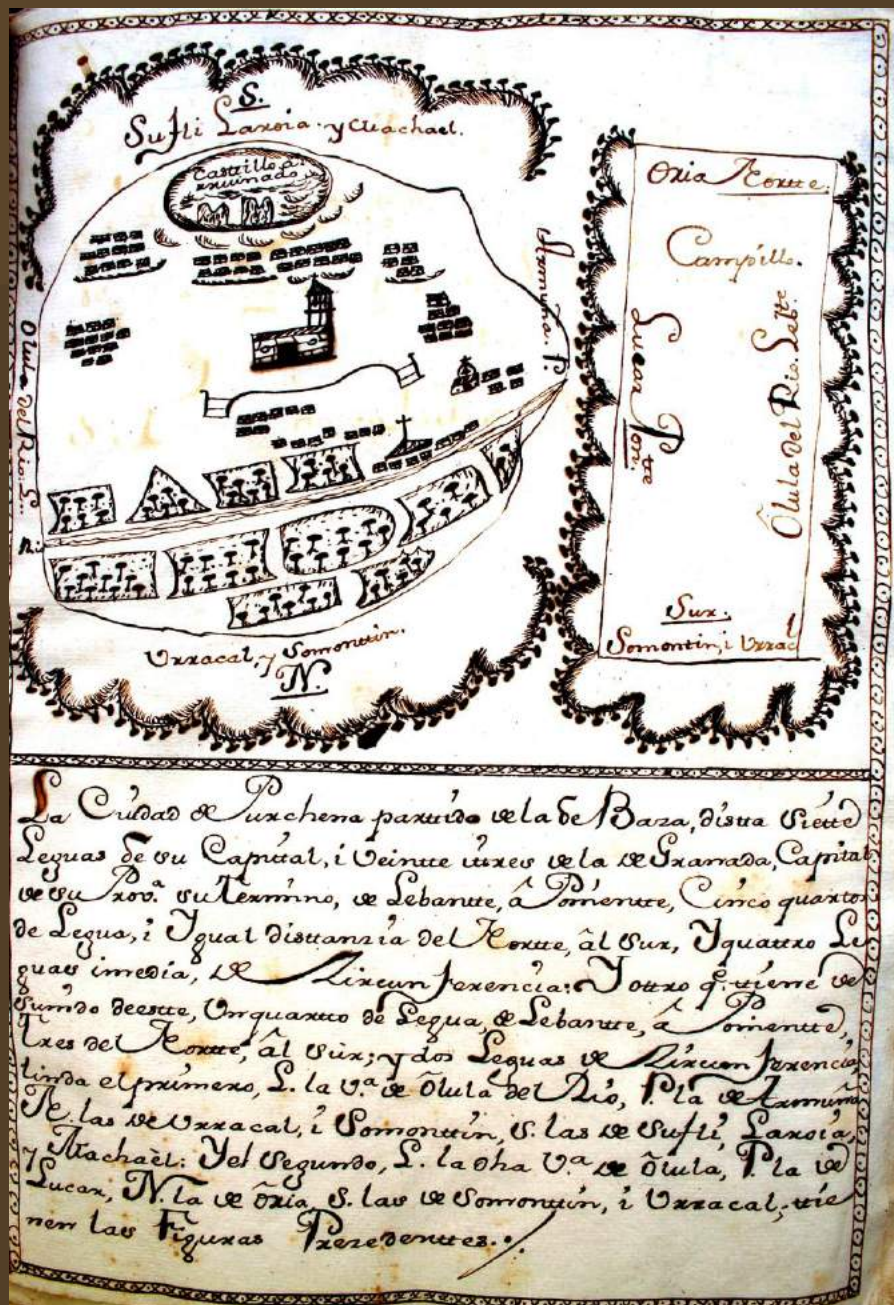 S.
Sufli Laroia y Machael.
Castillo a
rruinado
Armuña. P.
Olula del Rio. L.
R.
Urracal, y Somonttin.
N.
Oria Nortte.
Campillo.
Lucar Pontre
Ôlula del Rio. Lebtte.
Sur.
Somontin, i Urracl
La Ciudad de Purchena partido de la de Baza, distta Siette
Leguas de su Capital, i Veintte itres de la de Granada, Capital
de su Prov.ª su Termino, de Lebantte, â Ponientte, Cinco quartos
de Legua, i Ygual disttanzia del Nortte, âl Sur, Yquattro Le
guas imedia, de Zircunferencia: Y ottro q.e tiene de
deestte, Unquartto de Legua, de Lebantte, â Ponientte,
tres del Nortte, âl Sur; y dos Leguas de Zircunferencia,
linda el primero, L. la V.ª de Ôlula del Rio, P. la de Armuña
N. las de Urracal, i Somonttin, S. las de Sufli, Laroia,
y Machaèl: Yel Segundo, L. la dha V.ª de Ôlula, P. la de
Lucar, N. la de Ôria, S. las de Somonttin, i Urracal; tie
nen las Figuras Prezedenttes.